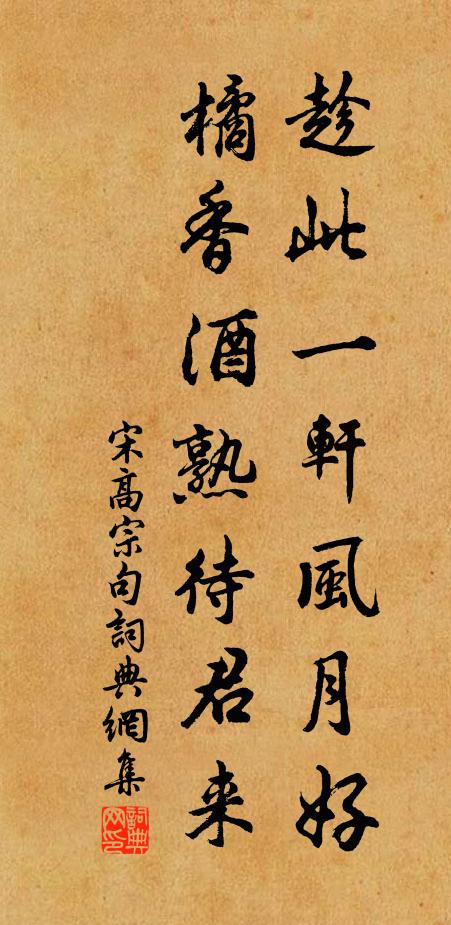 趁此一軒風月好
橘香酒熟待君来
宋高宗句詞典網集
詞典网印